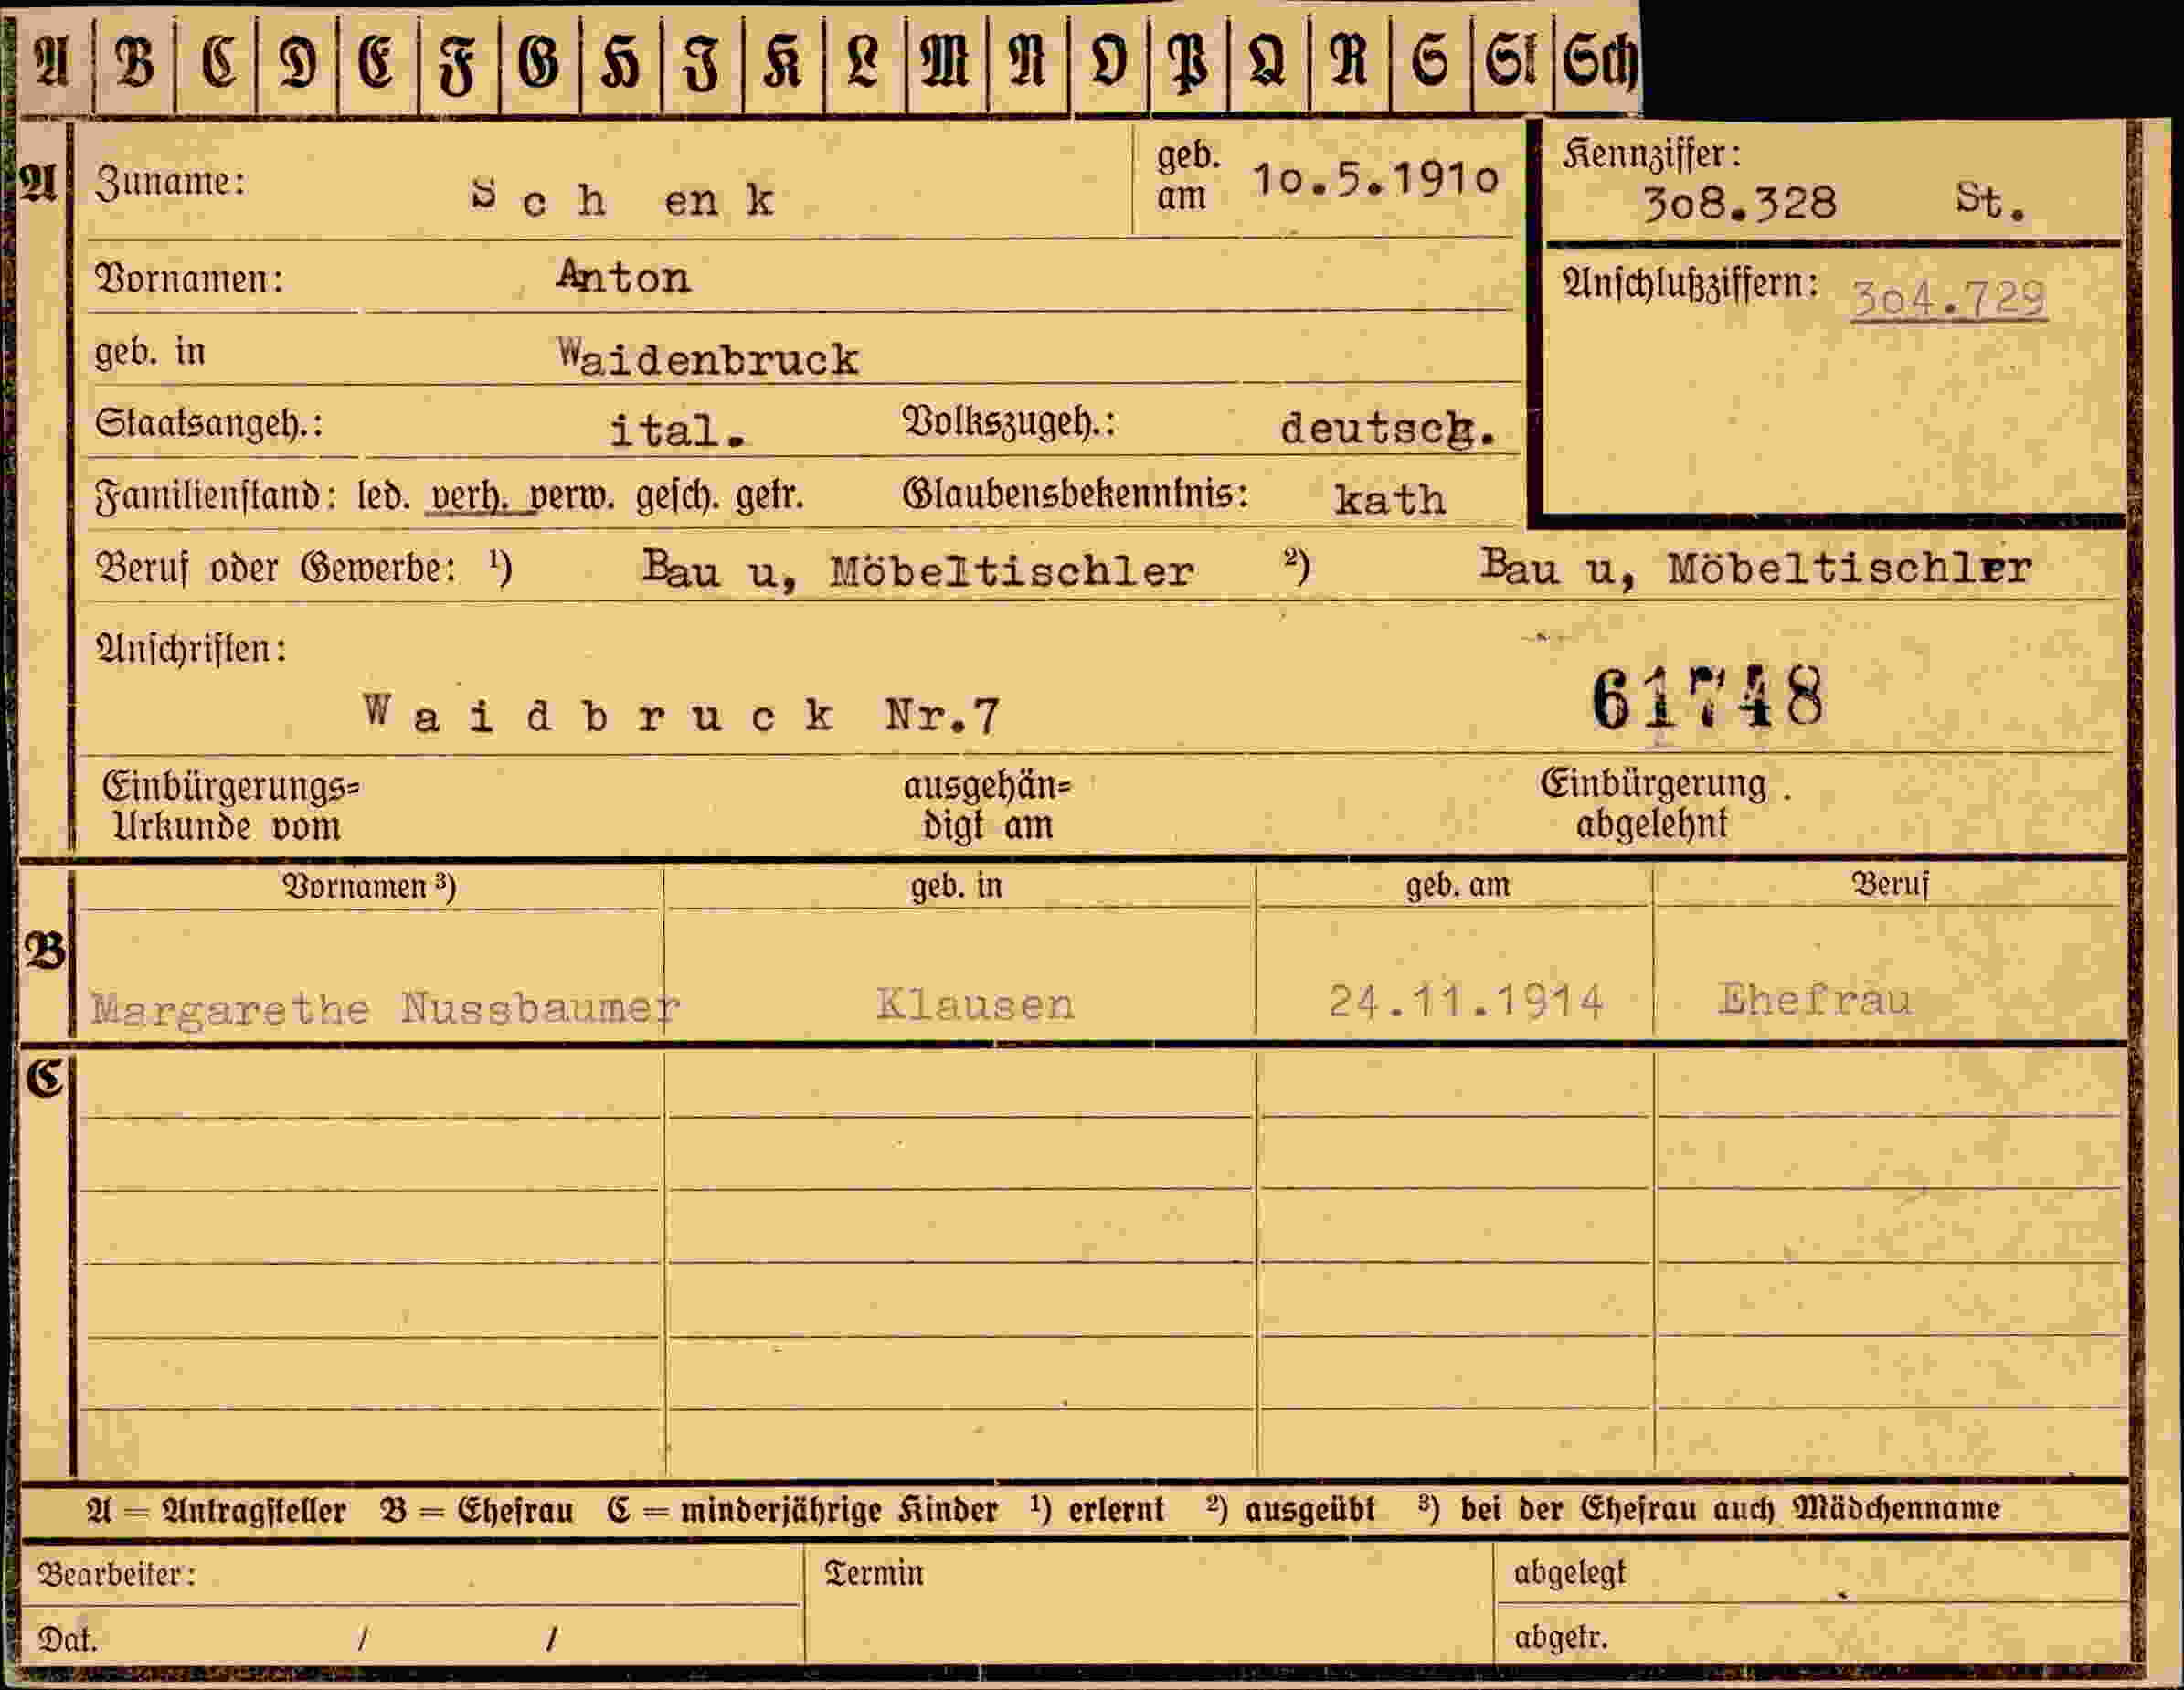 A B C D E F G H I K L M N O P Q R S St Sch
A Zuname: S c h en k geb. am 10.5.1910 Kennziffer: 308.328 St.
Vornamen: Anton Anschlußziffern: 304.729
geb. in Waidenbruck
Staatsangeh.: ital. Volkszugeh.: deutsch.
Familienstand: led. verh. verw. gesch. getr. Glaubensbekenntnis: kath
Beruf oder Gewerbe: ¹) Bau u, Möbeltischler ²) Bau u, Möbeltischler
Anschriften:
W a i d b r u c k Nr.7 61748
Einbürgerungs= ausgehän= Einbürgerung
Urkunde vom digt am abgelehnt
Vornamen ³) geb. in geb. am Beruf
B
Margarethe Nussbaumer Klausen 24.11.1914 Ehefrau
C
A = Antragsteller B = Ehefrau C = minderjährige Kinder ¹) erlernt ²) ausgeübt ³) bei der Ehefrau auch Mädchenname
Bearbeiter: Termin abgelegt
Dat. / / abgetr.